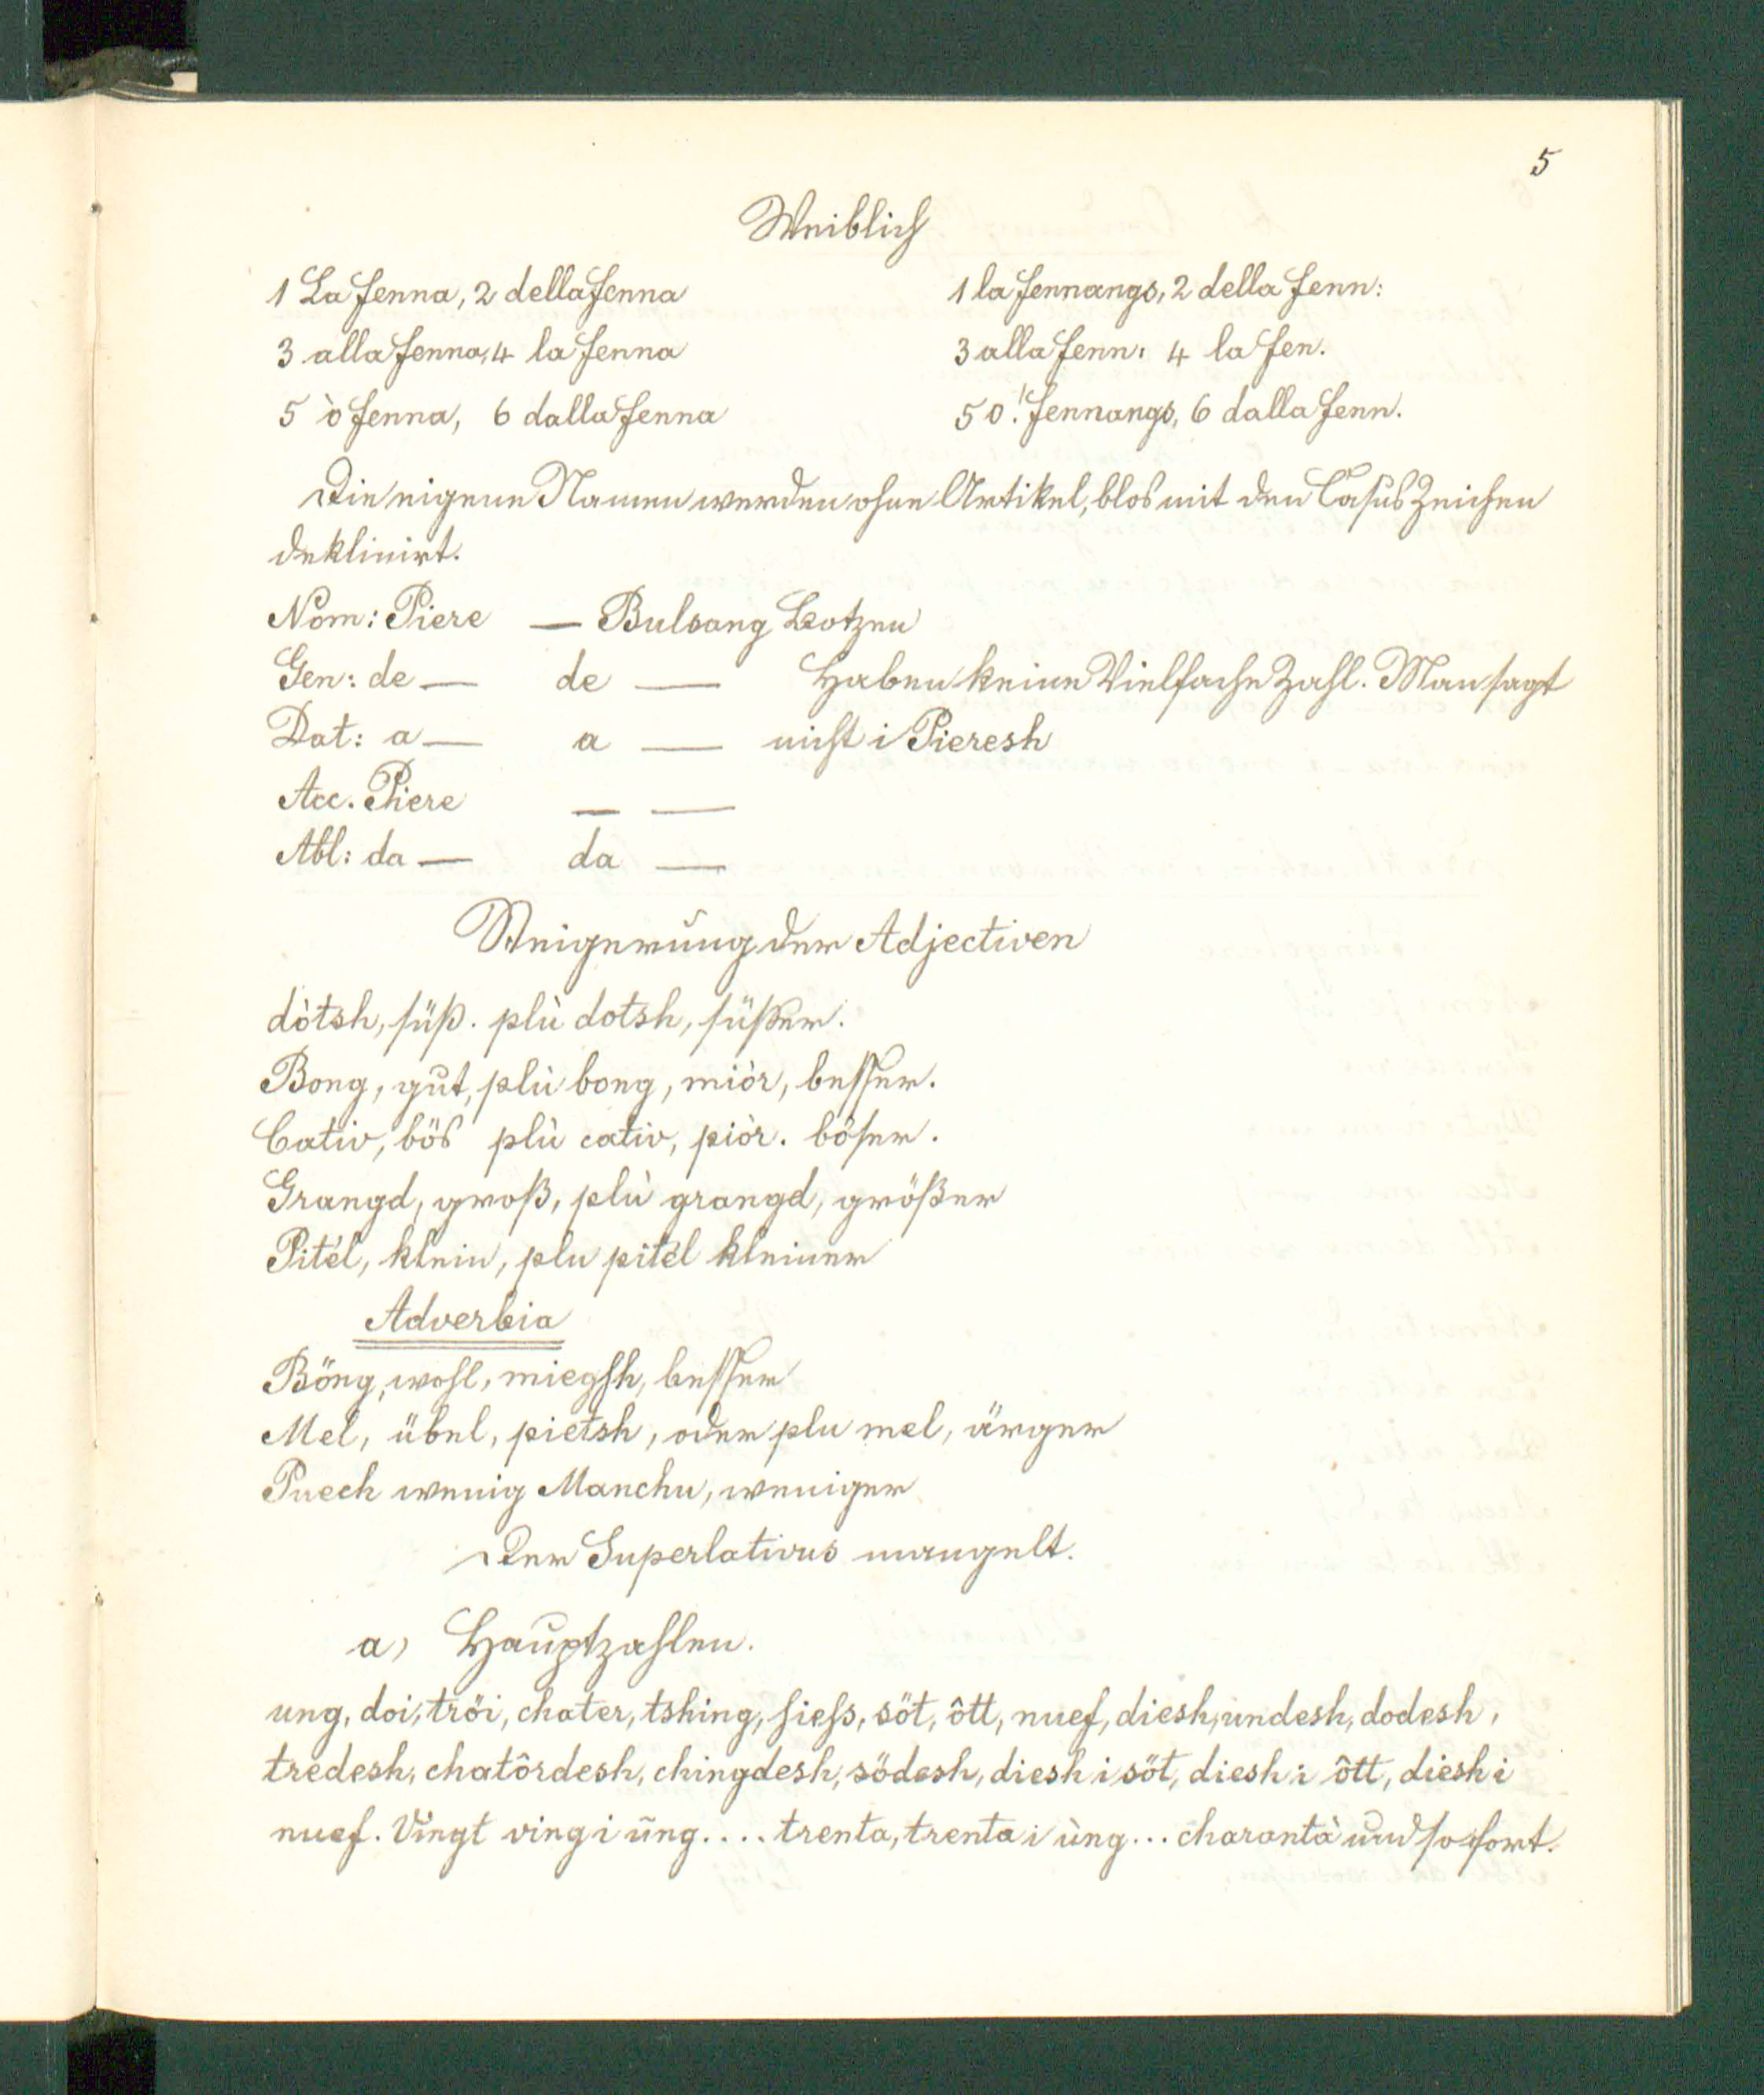 5
Weiblich
1 La fenna, 2 della fenna 1 la fennangs, 2 della fenn:
3 alla fenna, 4 la fenna 3 alla fenn: 4 la fen.
5 ò fenna, 6 dalla fenna 5 o! fennangs, 6 dalla fenn.
Die eigene Namen werden ohne Artikel, blos mit den Casus Zeichen
deklinirt.
Nom: Piere — Bulsang Botzen
Gen: de — de — Haben keine Vielfache Zahl. Man sagt
Dat: a — a — nicht i Pieresh
Acc. Piere — —
Abl: da — da —
Steigerung der Adjectiven
dòtsh, süß. plù dotsh, süßer.
Bong, gut, plù bong, miòr, besser.
Cativ, bös plù cativ, piòr. böser.
Grangd, groß, plù grangd, größer
Pitél, klein, plu pitél kleiner
Adverbia
Böng, wohl, miegsh, besser
Mel, übel, pietsh, oder plu mel, ärger
Puech wenig Manchu, weniger
Der Superlativus mangelt.
a) Hauptzahlen.
ung, doi, tröi, chater, tshing, siess, söt, ôtt, nuef, diesh, undesh, dodesh,
tredesh, chatôrdesh, chingdesh, södesh, diesh i söt, diesh i ôtt, diesh i
nuef. Vingt ving i ũng.... trenta, trenta i ùng... charantà und so fort.